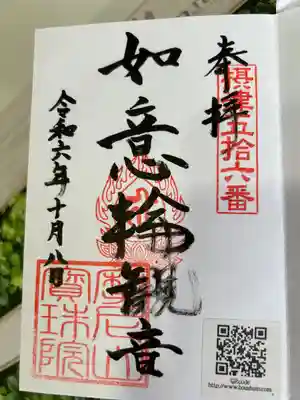 奉拝
摂津五拾六番
如意輪観音
令和六年十月八日
摩尼山
寳珠院
QRcode